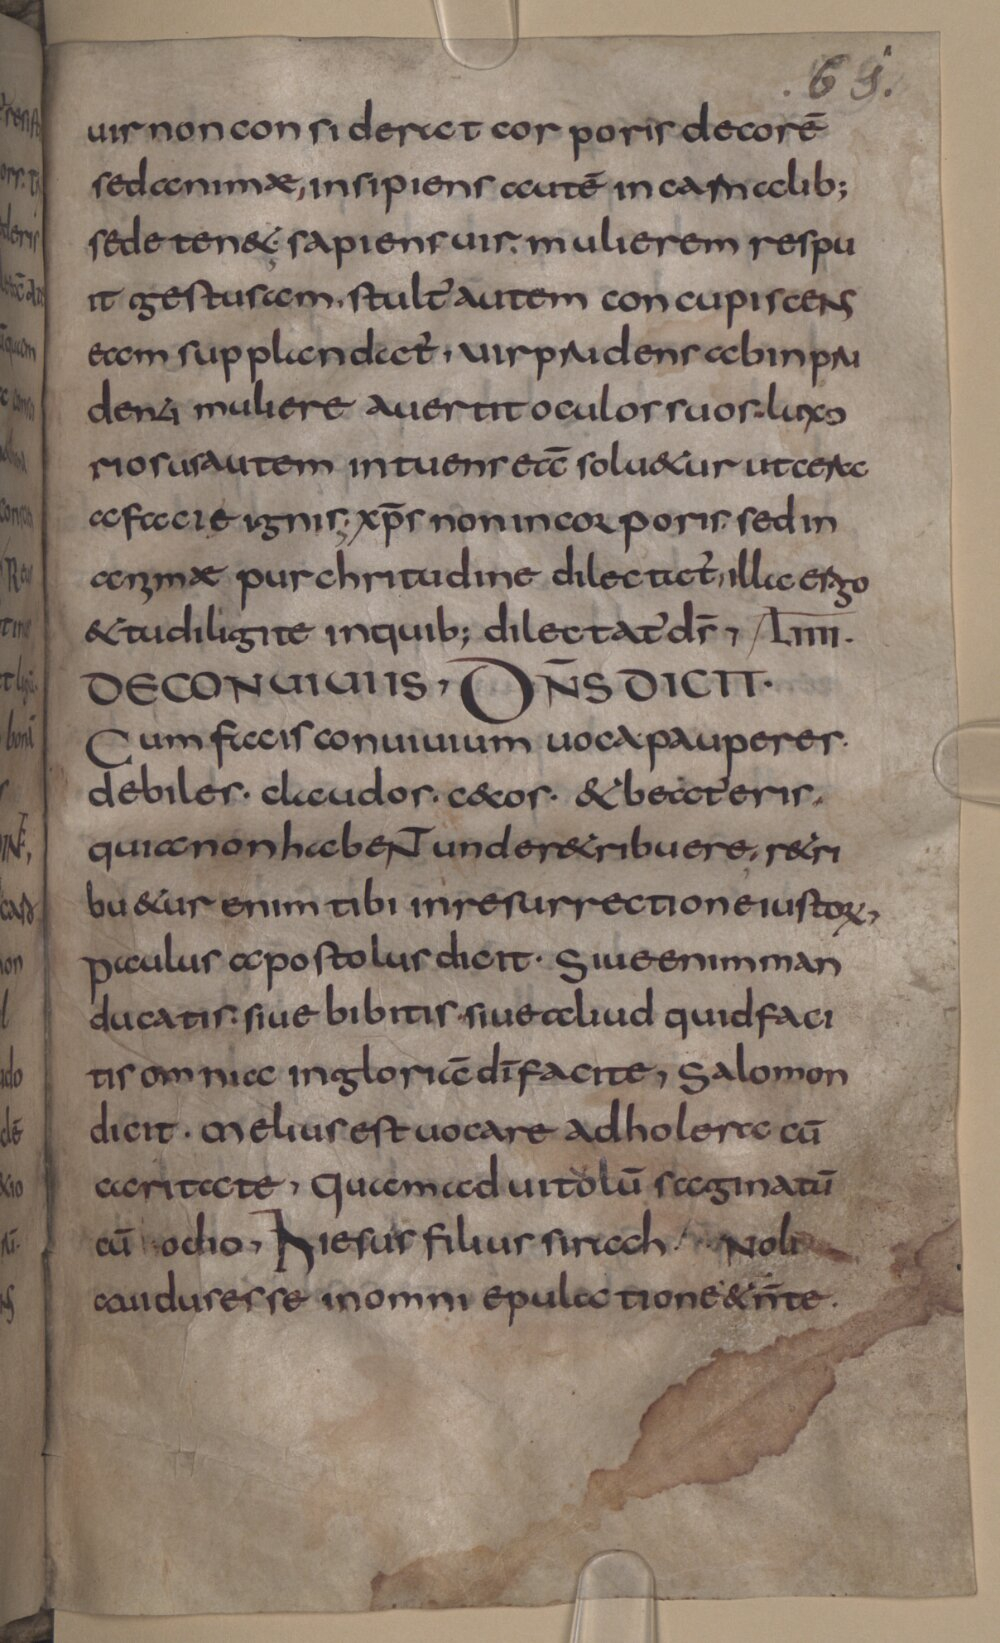 .69.
uir non considerat corporis decorē
sed animæ, insipiens autē in carnalib;
sede ten&. sapiens uir. mulierem respu
it gestusam. stult̓ autem concupiscens
eam supplandat̓, uir prudens ab inpru
denti muliere auertit oculos suos. luxo
riosus autem intuens eā solu&ur ut cera
a facie ignis; xp̄s non in corporis. sed in
animæ purchritudine dilectat̓, illa ergo
& tu diligite in quib; dilectat̓ dr̄, LIIII.
DE CONUIUIIS, DN̄S DICIT.
Cum facis conuiuium uoca pauperes.
debiles. claudos. c&os. & beat̓ eris,
quia non habent unde r&ribuere, r&ri
bu&ur enim tibi in resurrectione iustoꝝ,
Paulus apostolus dicit. Siue enim man
ducatis. siue bibitis. siue aliud quid faci
tis omnia in gloriā dī facite, Salomon
dicit. Melius est uocare ad holera cū
caritate, Quam ad uitolū saginatū
cū odio, Hiesus filius sirach. Noli
auidus esse in omni epulatione & n̄ te.